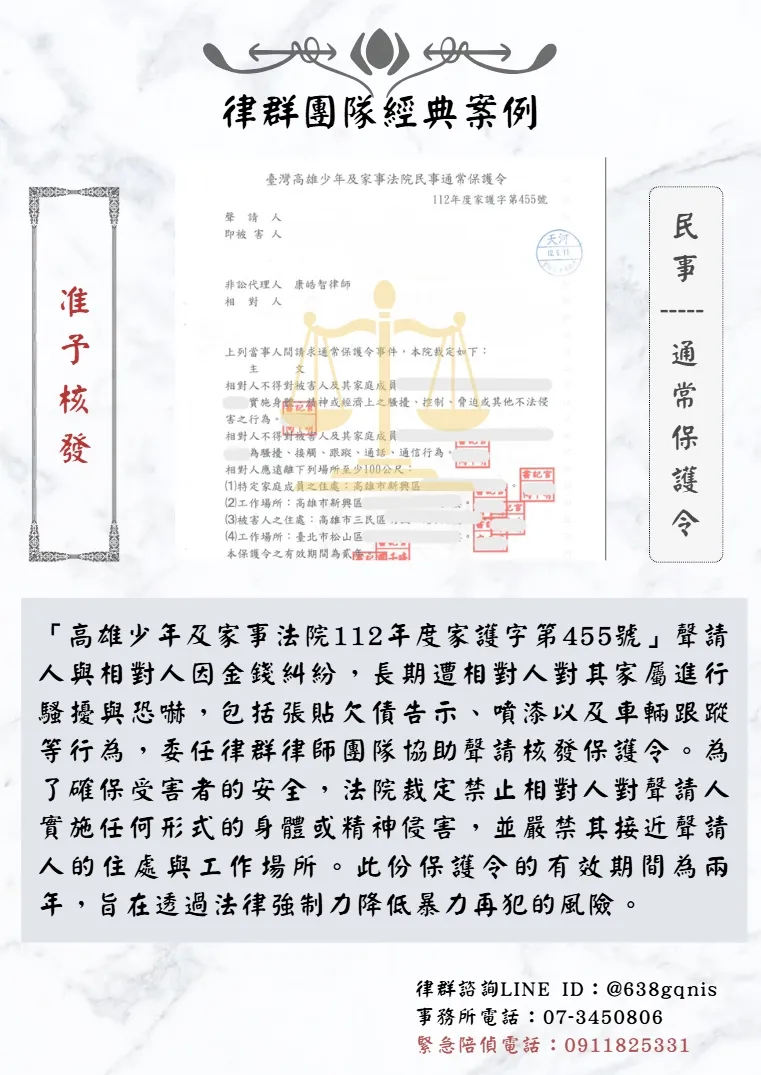 律群團隊經典案例
准予核發
臺灣高雄少年及家事法院民事通常保護令
112年度家護字第455號
聲請人
即被害人
天河
非訟代理人 康皓智律師
相對人
上列當事人間請求通常保護令事件,本院裁定如下:
主文
相對人不得對被害人及其家庭成員
實施身體、精神或經濟上之騷擾、控制、脅迫或其他不法侵
害之行為。
相對人不得對被害人及其家庭成員
為騷擾、接觸、跟蹤、通話、通信行為。
相對人應遠離下列場所至少100公尺:
⑴特定家庭成員之住處:高雄市新興區
⑵工作場所:高雄市新興區
⑶被害人之住處:高雄市三民區
⑷工作場所:臺北市松山區
本保護令之有效期間為貳年
民事
-----
通常保護令
「高雄少年及家事法院112年度家護字第455號」聲請
人與相對人因金錢糾紛,長期遭相對人對其家屬進行
騷擾與恐嚇,包括張貼欠債告示、噴漆以及車輛跟蹤
等行為,委任律群律師團隊協助聲請核發保護令。為
了確保受害者的安全,法院裁定禁止相對人對聲請人
實施任何形式的身體或精神侵害,並嚴禁其接近聲請
人的住處與工作場所。此份保護令的有效期間為兩
年,旨在透過法律強制力降低暴力再犯的風險。
律群諮詢LINE ID:@638gqnis
事務所電話:07-3450806
緊急陪偵電話:0911825331